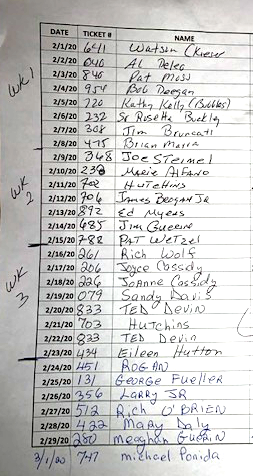 DATE TICKET # NAME
2/1/20 641 Watson
2/2/20 040 AL Deleo
WK 1
2/3/20 840 Pat Moss
2/4/20 954 Bob Deegan
2/5/20 220 Kathy Kelly (Bubbles)
2/6/20 232 Sr Rosetta Buckley
2/7/20 308 Jim Bruncati
2/8/20 475 Brian Marra
2/9/20 368 JOE STEIMEL
2/10/20 238 MARIE ALFANO
WK 2
2/11/20 702 HUTCHINS
2/12/20 706 JAMES BROGAN JR
2/13/20 892 ED Myers
2/14/20 685 Jim Guerin
2/15/20 788 PAT WETZEL
2/16/20 261 Rich Wolf
2/17/20 206 Joyce Cassidy
WK 3
2/18/20 226 Joanne Cassidy
2/19/20 079 Sandy Davis
2/20/20 833 TED DEVIN
2/21/20 703 Hutchins
2/22/20 833 TED Devin
2/23/20 434 Eileen Hutton
2/24/20 451 ROGAN
2/25/20 131 GEORGE FUELLER
2/26/20 356 LARRY JR
2/27/20 512 Rich O'BRIEN
2/28/20 422 Mary Daly
2/29/20 200 meaghan GUERIN
3/1/20 747 michael Ponida